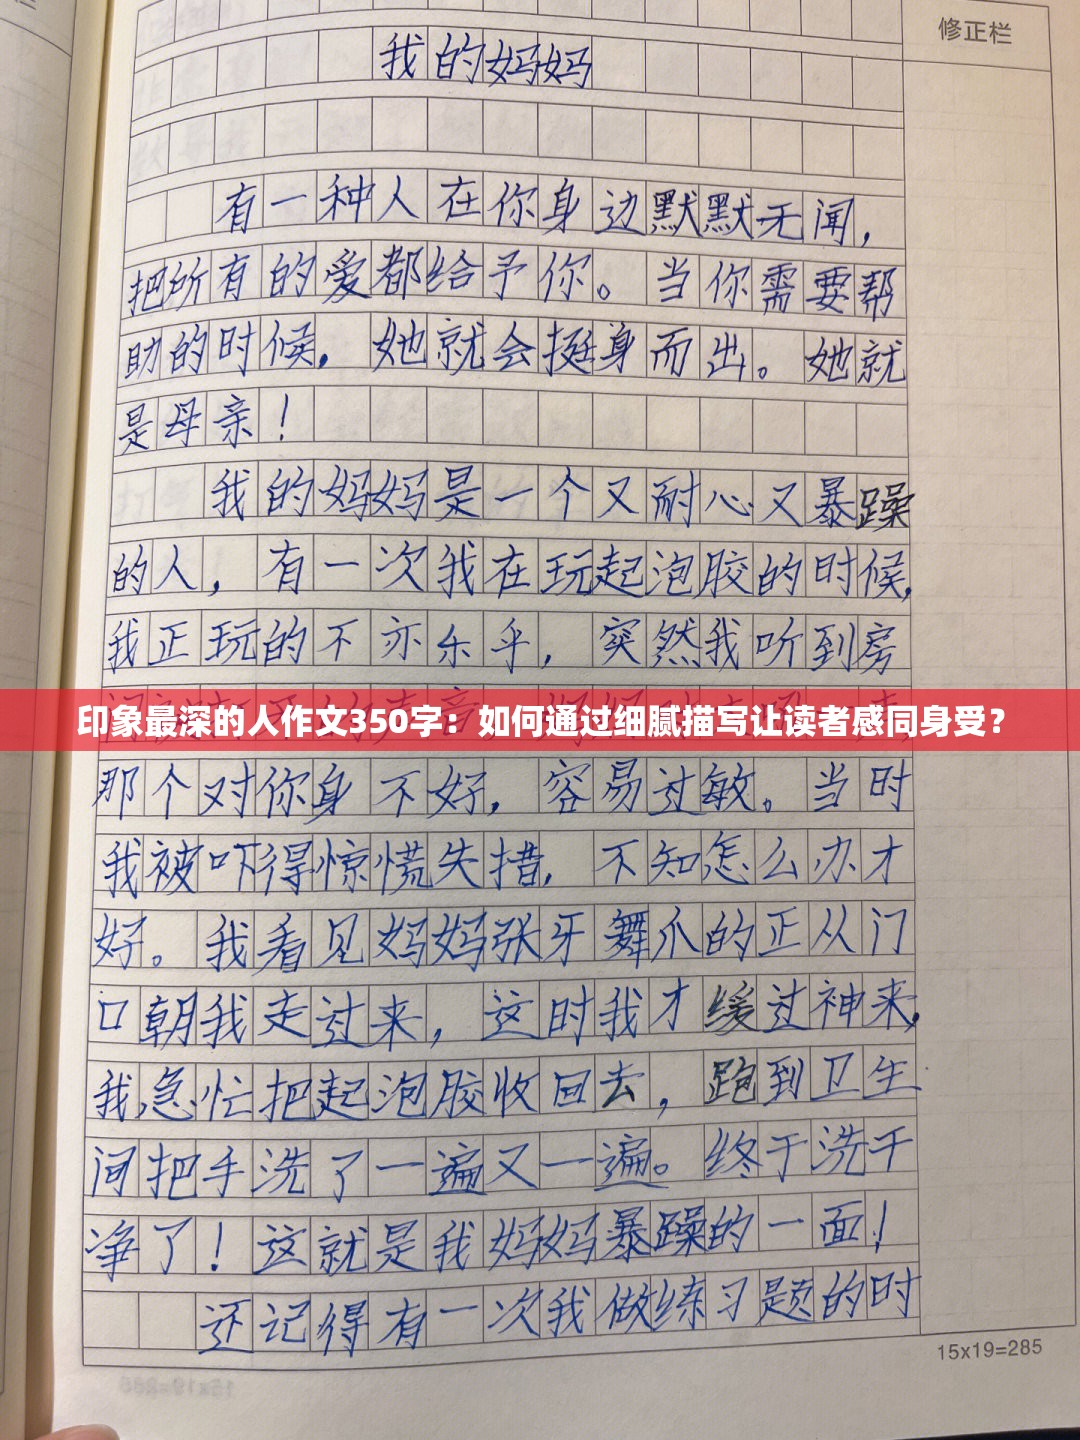 修正栏
我的妈妈
有一种人在你身边默默无闻，
把所有的爱都给予你。当你需要帮
助的时候，她就会挺身而出。她就
是母亲！
我的妈妈是一个又耐心又暴躁
的人，有一次我在玩起泡胶的时候，
我正玩的不亦乐乎，突然我听到房
印象最深的人作文350字：如何通过细腻描写让读者感同身受？
那个对你身不好，容易过敏。当时
我被吓得惊慌失措，不知怎么办才
好。我看见妈妈张牙舞爪的正从门
口朝我走过来，这时我才缓过神来，
我急忙把起泡胶收回去，跑到卫生
间把手洗了一遍又一遍。终于洗干
净了！这就是我妈妈暴躁的一面！
还记得有一次我做练习题的时
15x19=285